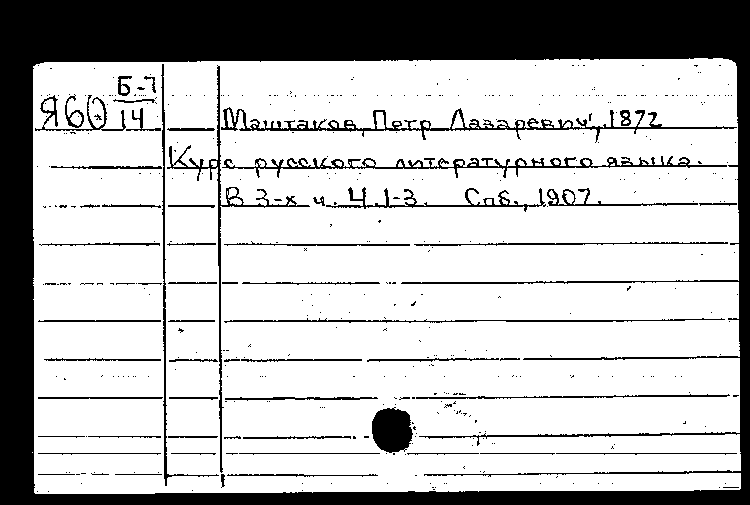 Б-7
Я60 14
Маштаков, Петр Лазаревич, 1872
Курс русского литературного языка.
В 3-х ч. Ч. 1-3. Спб., 1907.